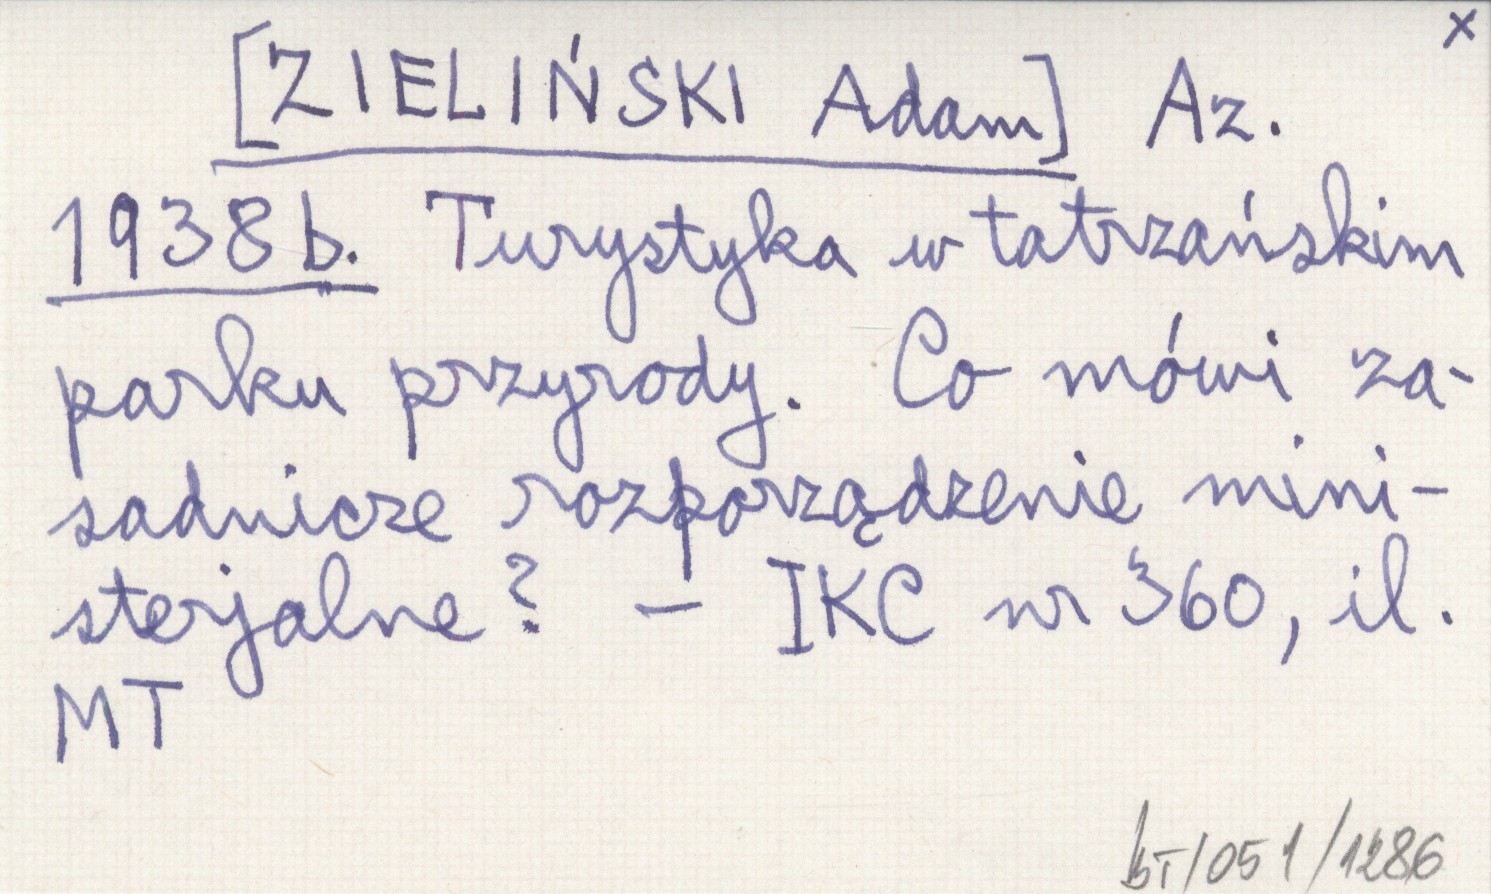 x
[ZIELIŃSKI Adam] Az.
1938b. Turystyka w tatrzańskim
parku przyrody. Co mówi za-
sadnicze rozporządzenie mini-
sterjalne? – IKC nr 360, il.
MT
bT/051/1286